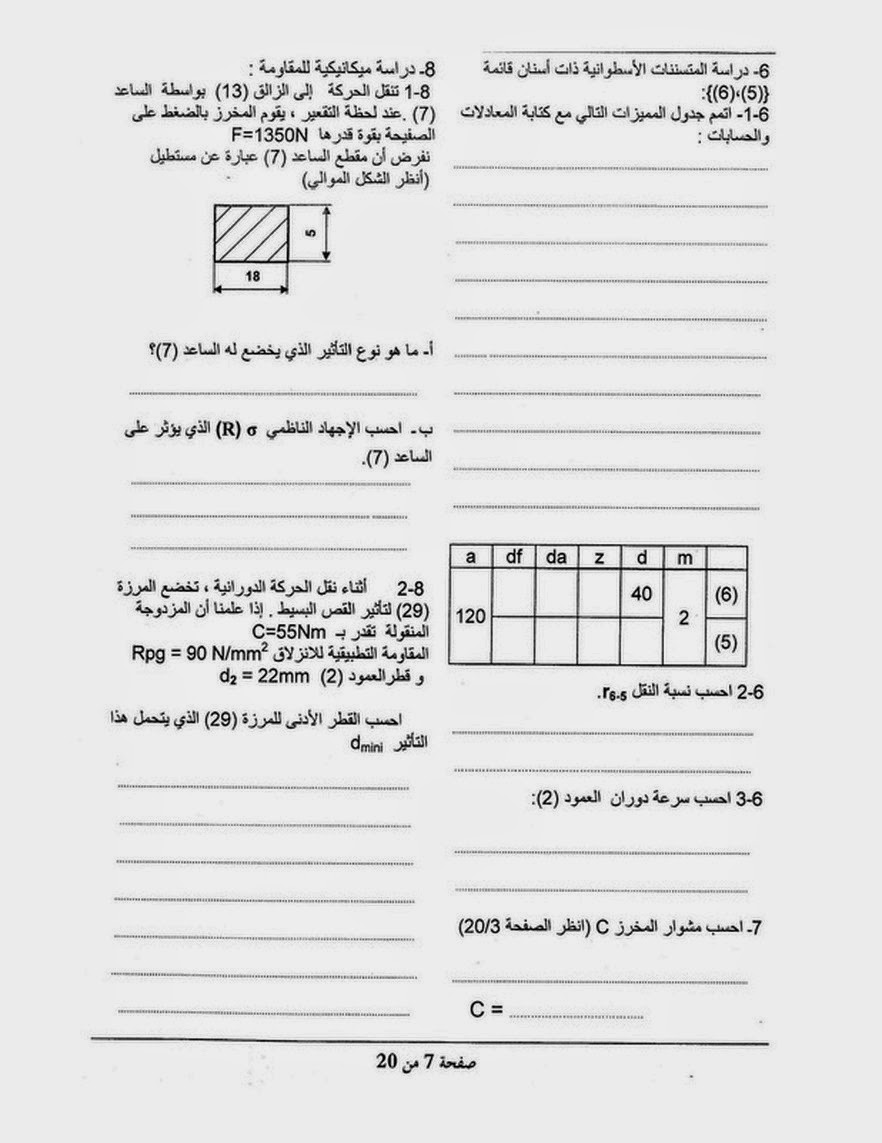 6- دراسة المتسننات الأسطوانية ذات أسنان قائمة
{(5)،(6)}:
6-1- اتمم جدول المميزات التالي مع كتابة المعادلات
والحسابات :
a df da z d m
120 40 2 (6)
(5)
6-2 احسب نسبة النقل r6-5.
6-3 احسب سرعة دوران العمود (2):
7- احسب مشوار المخرز C (انظر الصفحة 20/3)
C = ........................
8- دراسة ميكانيكية للمقاومة :
8-1 تنقل الحركة إلى الزالق (13) بواسطة الساعد
(7) .عند لحظة التقعير ، يقوم المخرز بالضغط على
الصفيحة بقوة قدرها F=1350N
نفرض أن مقطع الساعد (7) عبارة عن مستطيل
(أنظر الشكل الموالي)
5
18
أ- ما هو نوع التأثير الذي يخضع له الساعد (7)؟
ب- احسب الإجهاد الناظمي σ (R) الذي يؤثر على
الساعد (7).
8-2 أثناء نقل الحركة الدورانية ، تخضع المرزة
(29) لتأثير القص البسيط . إذا علمنا أن المزدوجة
المنقولة تقدر بـ C=55Nm
المقاومة التطبيقية للانزلاق Rpg = 90 N/mm²
و قطرالعمود (2) d₂ = 22mm
احسب القطر الأدنى للمرزة (29) الذي يتحمل هذا
التأثير dmini
صفحة 7 من 20